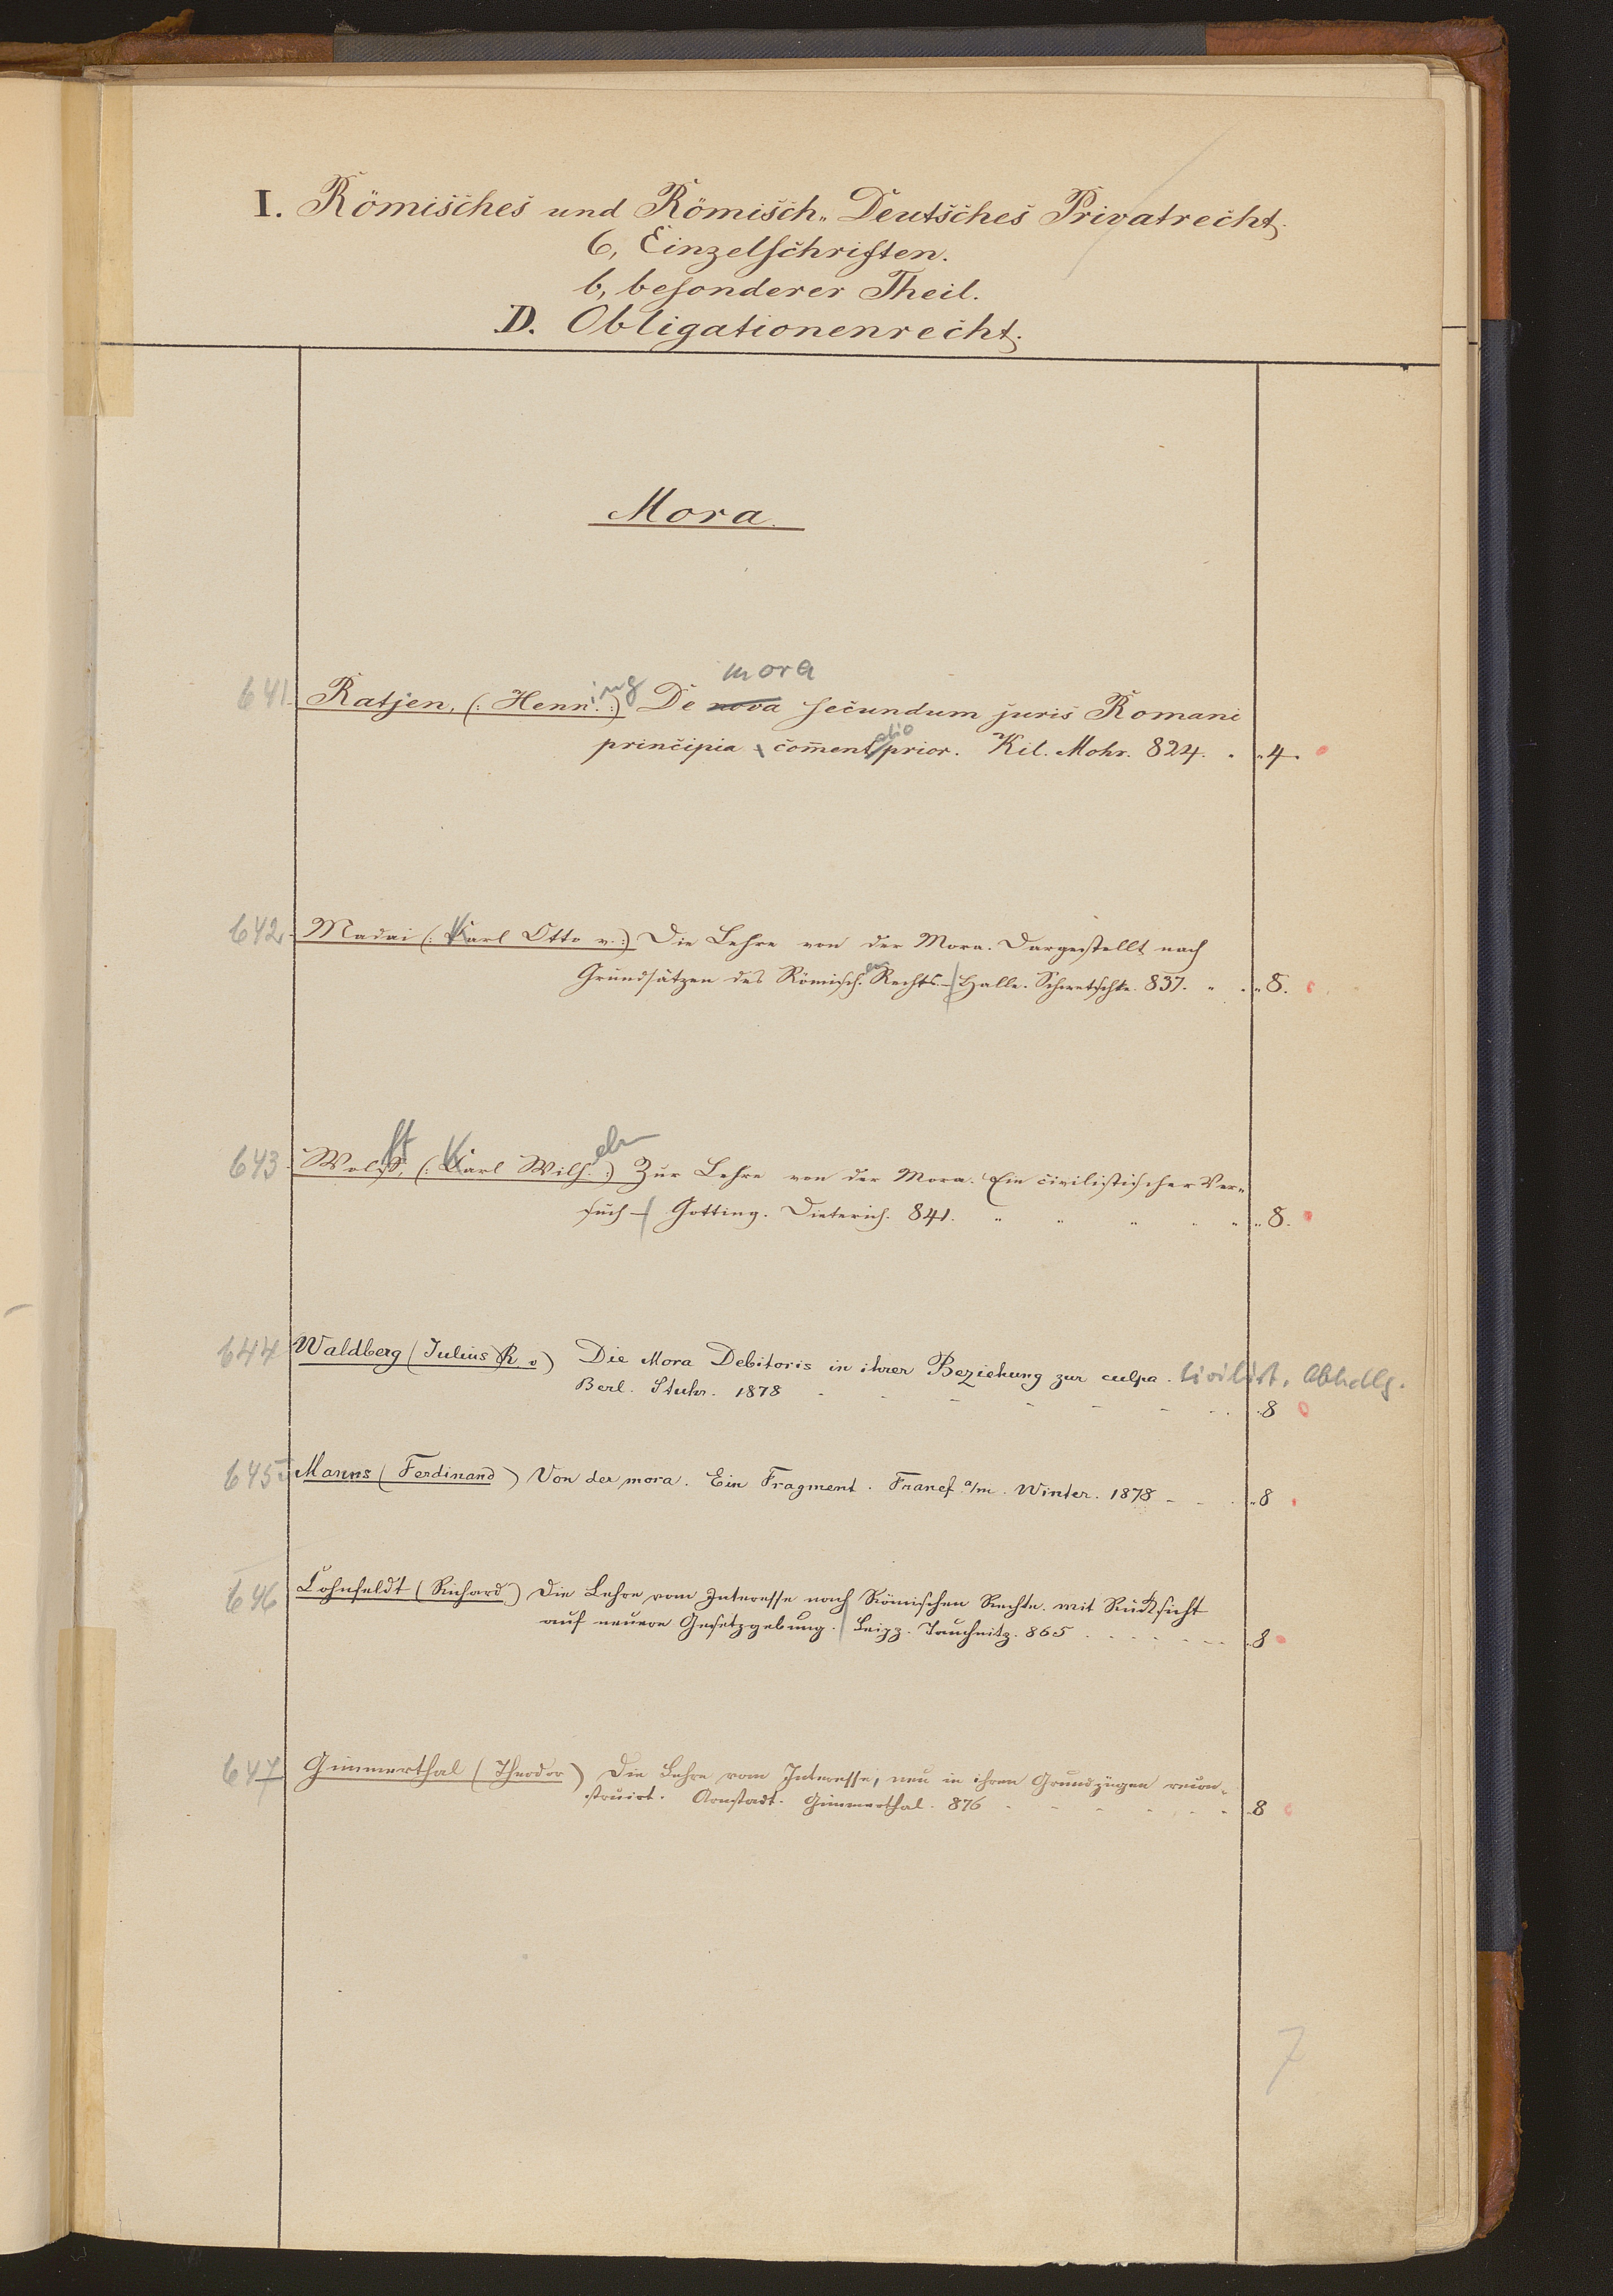 I. Römisches und Römisch-Deutsches Privatrecht.
6, Einzelschriften.
b, besonderer Theil.
D. Obligationenrecht.
Mora.
mora
641 Ratjen, (: Henning :) De nova secundum juris Romani
principia coment.atio prior. Kil. Mohr. 824. 4.
642 Madai (: Karl Otto v. :) Die Lehre von der Mora. Dargestellt nach
Grundsätzen des Römischen Rechts. – Halle. Schwetschke. 837. 8.
643 Wolff, (: Karl Wilh.elm :) Zur Lehre von der Mora. Ein civilistischer Ver-
such – Gotting. Dieterich. 841. 8.
644 Waldberg (Julius R v) Die Mora Debitoris in ihrer Beziehung zur culpa. Civilist. Abhdlg.
Berl. Stuhr. 1878 8
645 Manns (Ferdinand) Von der mora. Ein Fragment. Francf. a/m. Winter. 1878 8
646 Cohnfeldt (Richard) Die Lehre vom Interesse nach Römischen Rechte. mit Rücksicht
auf neuere Gesetzgebung. Leipz. Tauchnitz. 865 8
647 Gimmerthal (Theodor) Die Lehre vom Interesse, neu in ihren Grundzügen recon-
struirt. Arnstadt. Gimmerthal. 876 8
7